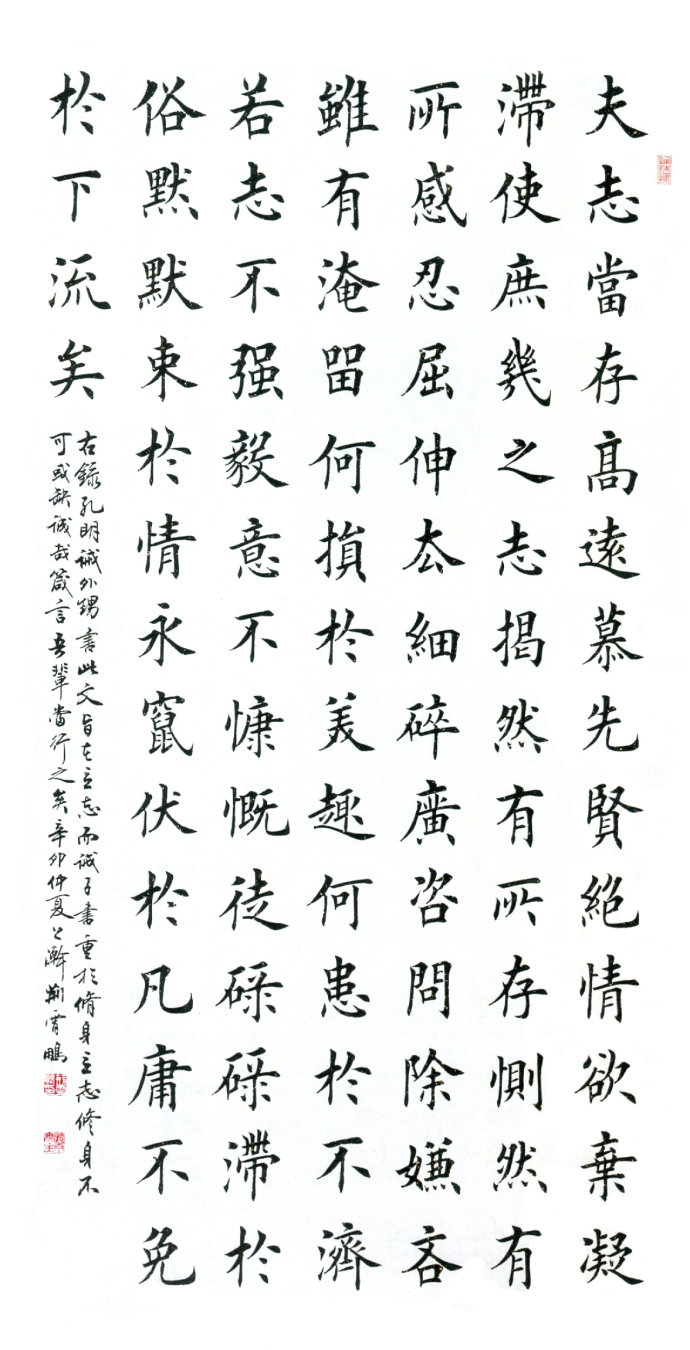 夫志當存高遠慕先賢絕情欲棄凝
滯使庶幾之志揭然有所存惻然有
所感忍屈伸去細碎廣咨問除嫌吝
雖有淹留何損於美趣何患於不濟
若志不强毅意不慷慨徒碌碌滯於
俗默默束於情永竄伏於凡庸不免
於下流矣
右錄孔明誡外甥書此文旨在立志而誡子書重於脩身立志修身不
可或缺誠哉箴言吾輩當行之矣辛卯仲夏